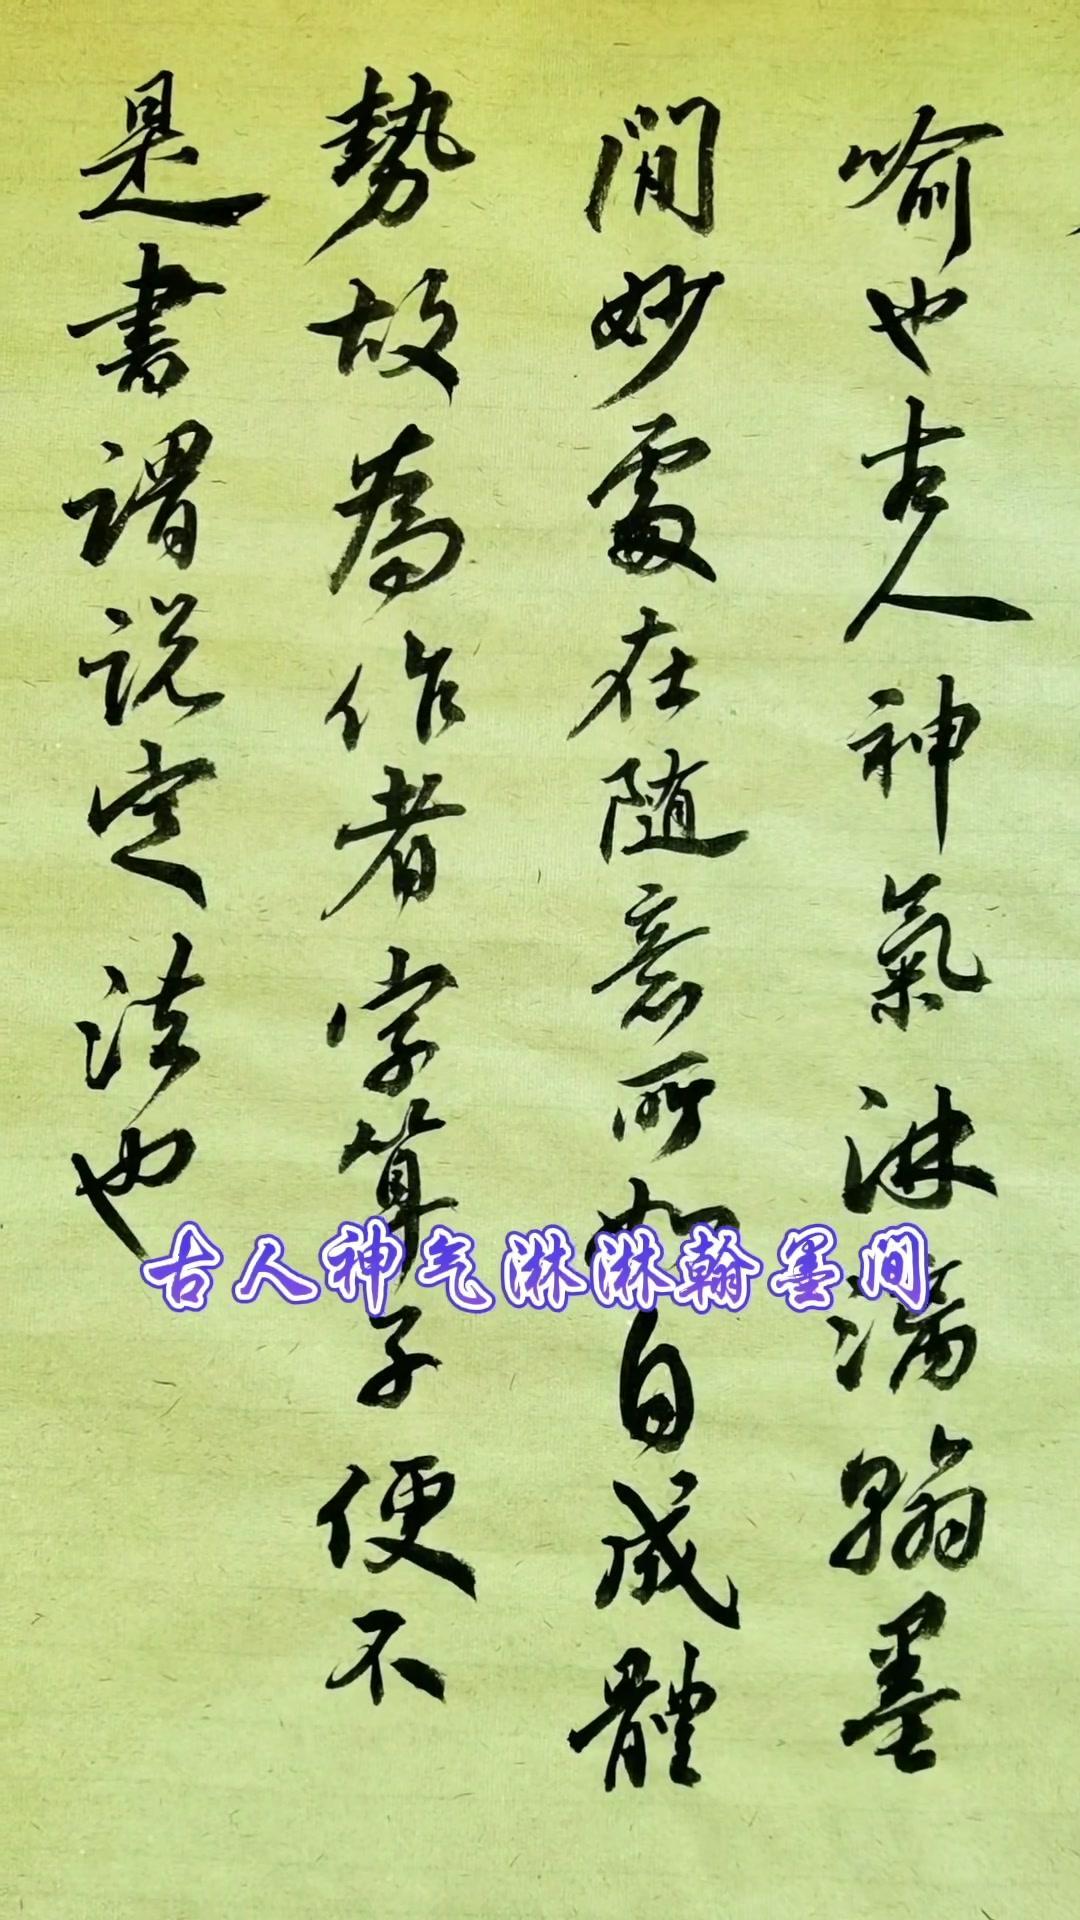 喻也古人神氣淋漓翰墨
間妙處在随意所如自成體
勢故為作者字算子便不
是書謂説定法也
古人神气淋淋翰墨间